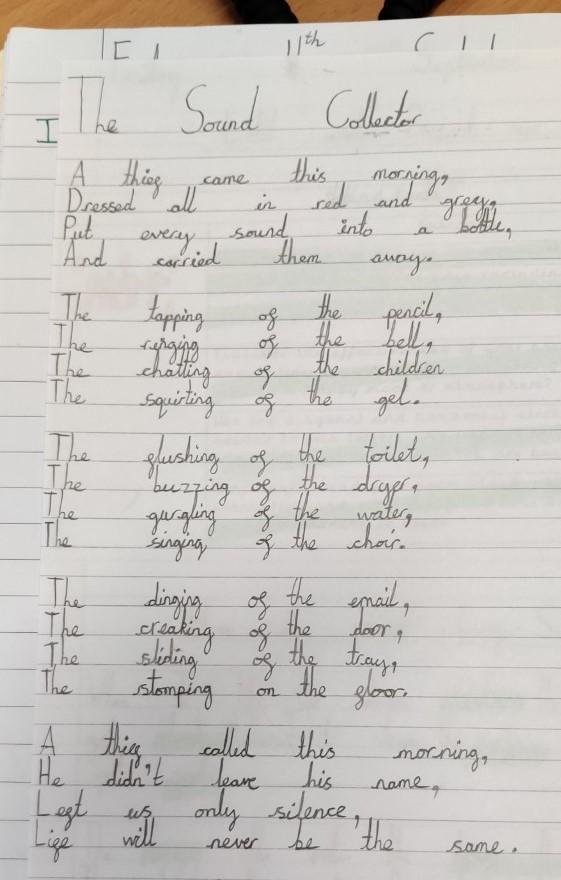 11th
The Sound Collector
A thief came this morning,
Dressed all in red and grey,
Put every sound into a bottle,
And carried them away.
The tapping of the pencil,
The ringing of the bell,
The chatting of the children
The squirting of the gel.
The flushing of the toilet,
The buzzing of the dryer,
The gurgling of the water,
The singing of the choir.
The dinging of the email,
The creaking of the door,
The sliding of the tray,
The stomping on the floor.
A thief called this morning,
He didn't leave his name,
Left us only silence,
Life will never be the same.